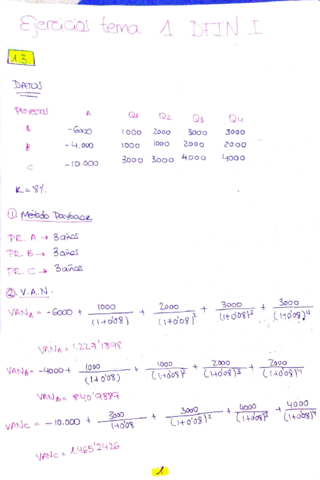 Ejercicios tema 1 DFIN I
1.3
DATOS
PROYECTOS A Q1 Q2 Q3 Q4
A -6000 1000 2000 3000 3000
B -4.000 1000 1000 2000 2000
C -10.000 3000 3000 4000 4000
K = 8%
① Método Payback
PR. A → 3 años
PR. B → 3 años
PR. C → 3 años
② V.A.N.
VANA = -6000 + 1000/(1+0'08) + 2000/(1+0'08)² + 3000/(1+0'08)³ + 3000/(1+0'08)⁴
VANA = 1.227'1898
VANB = -4000 + 1000/(1+0'08) + 1000/(1+0'08)² + 2000/(1+0'08)³ + 2000/(1+0'08)⁴
VANB = 840'9887
VANC = -10.000 + 3000/1+0'08 + 3000/(1+0'08)² + 4000/(1+0'08)³ + 4000/(1+0'08)⁴
VANC = 1.465'2426
1